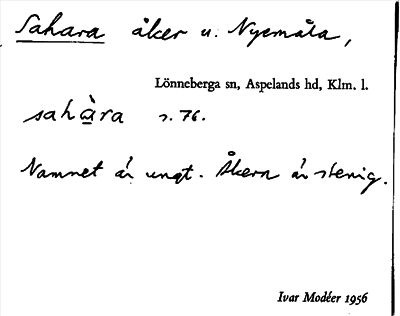 Sahara åker u. Nyemåla,
Lönneberga sn, Aspelands hd, Klm. l.
sahàra s. 76.
Namnet är ungt. Åkern är stenig.
Ivar Modéer 1956